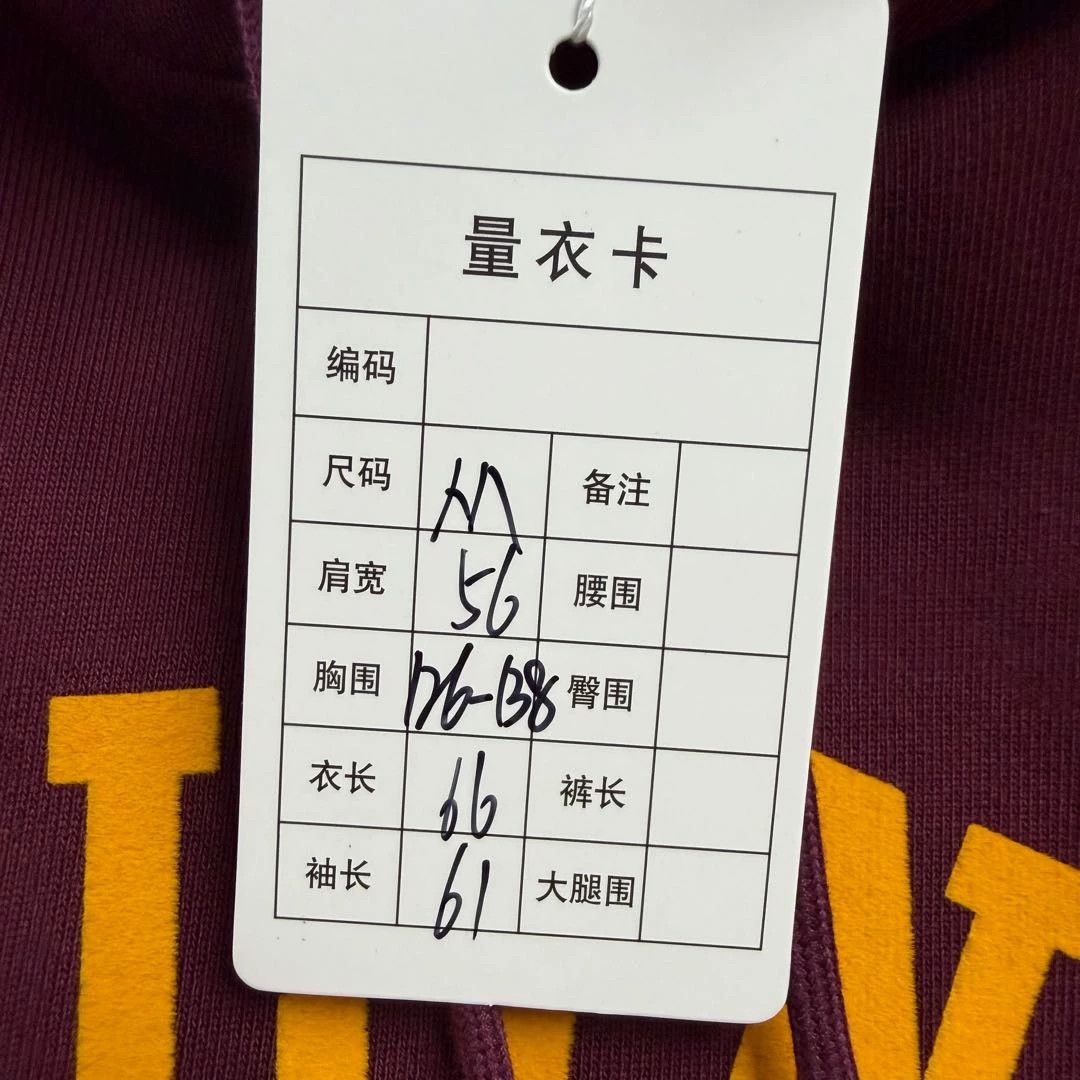 量衣卡
编码
尺码 M 备注
肩宽 56 腰围
胸围 126-138 臀围
衣长 66 裤长
袖长 61 大腿围